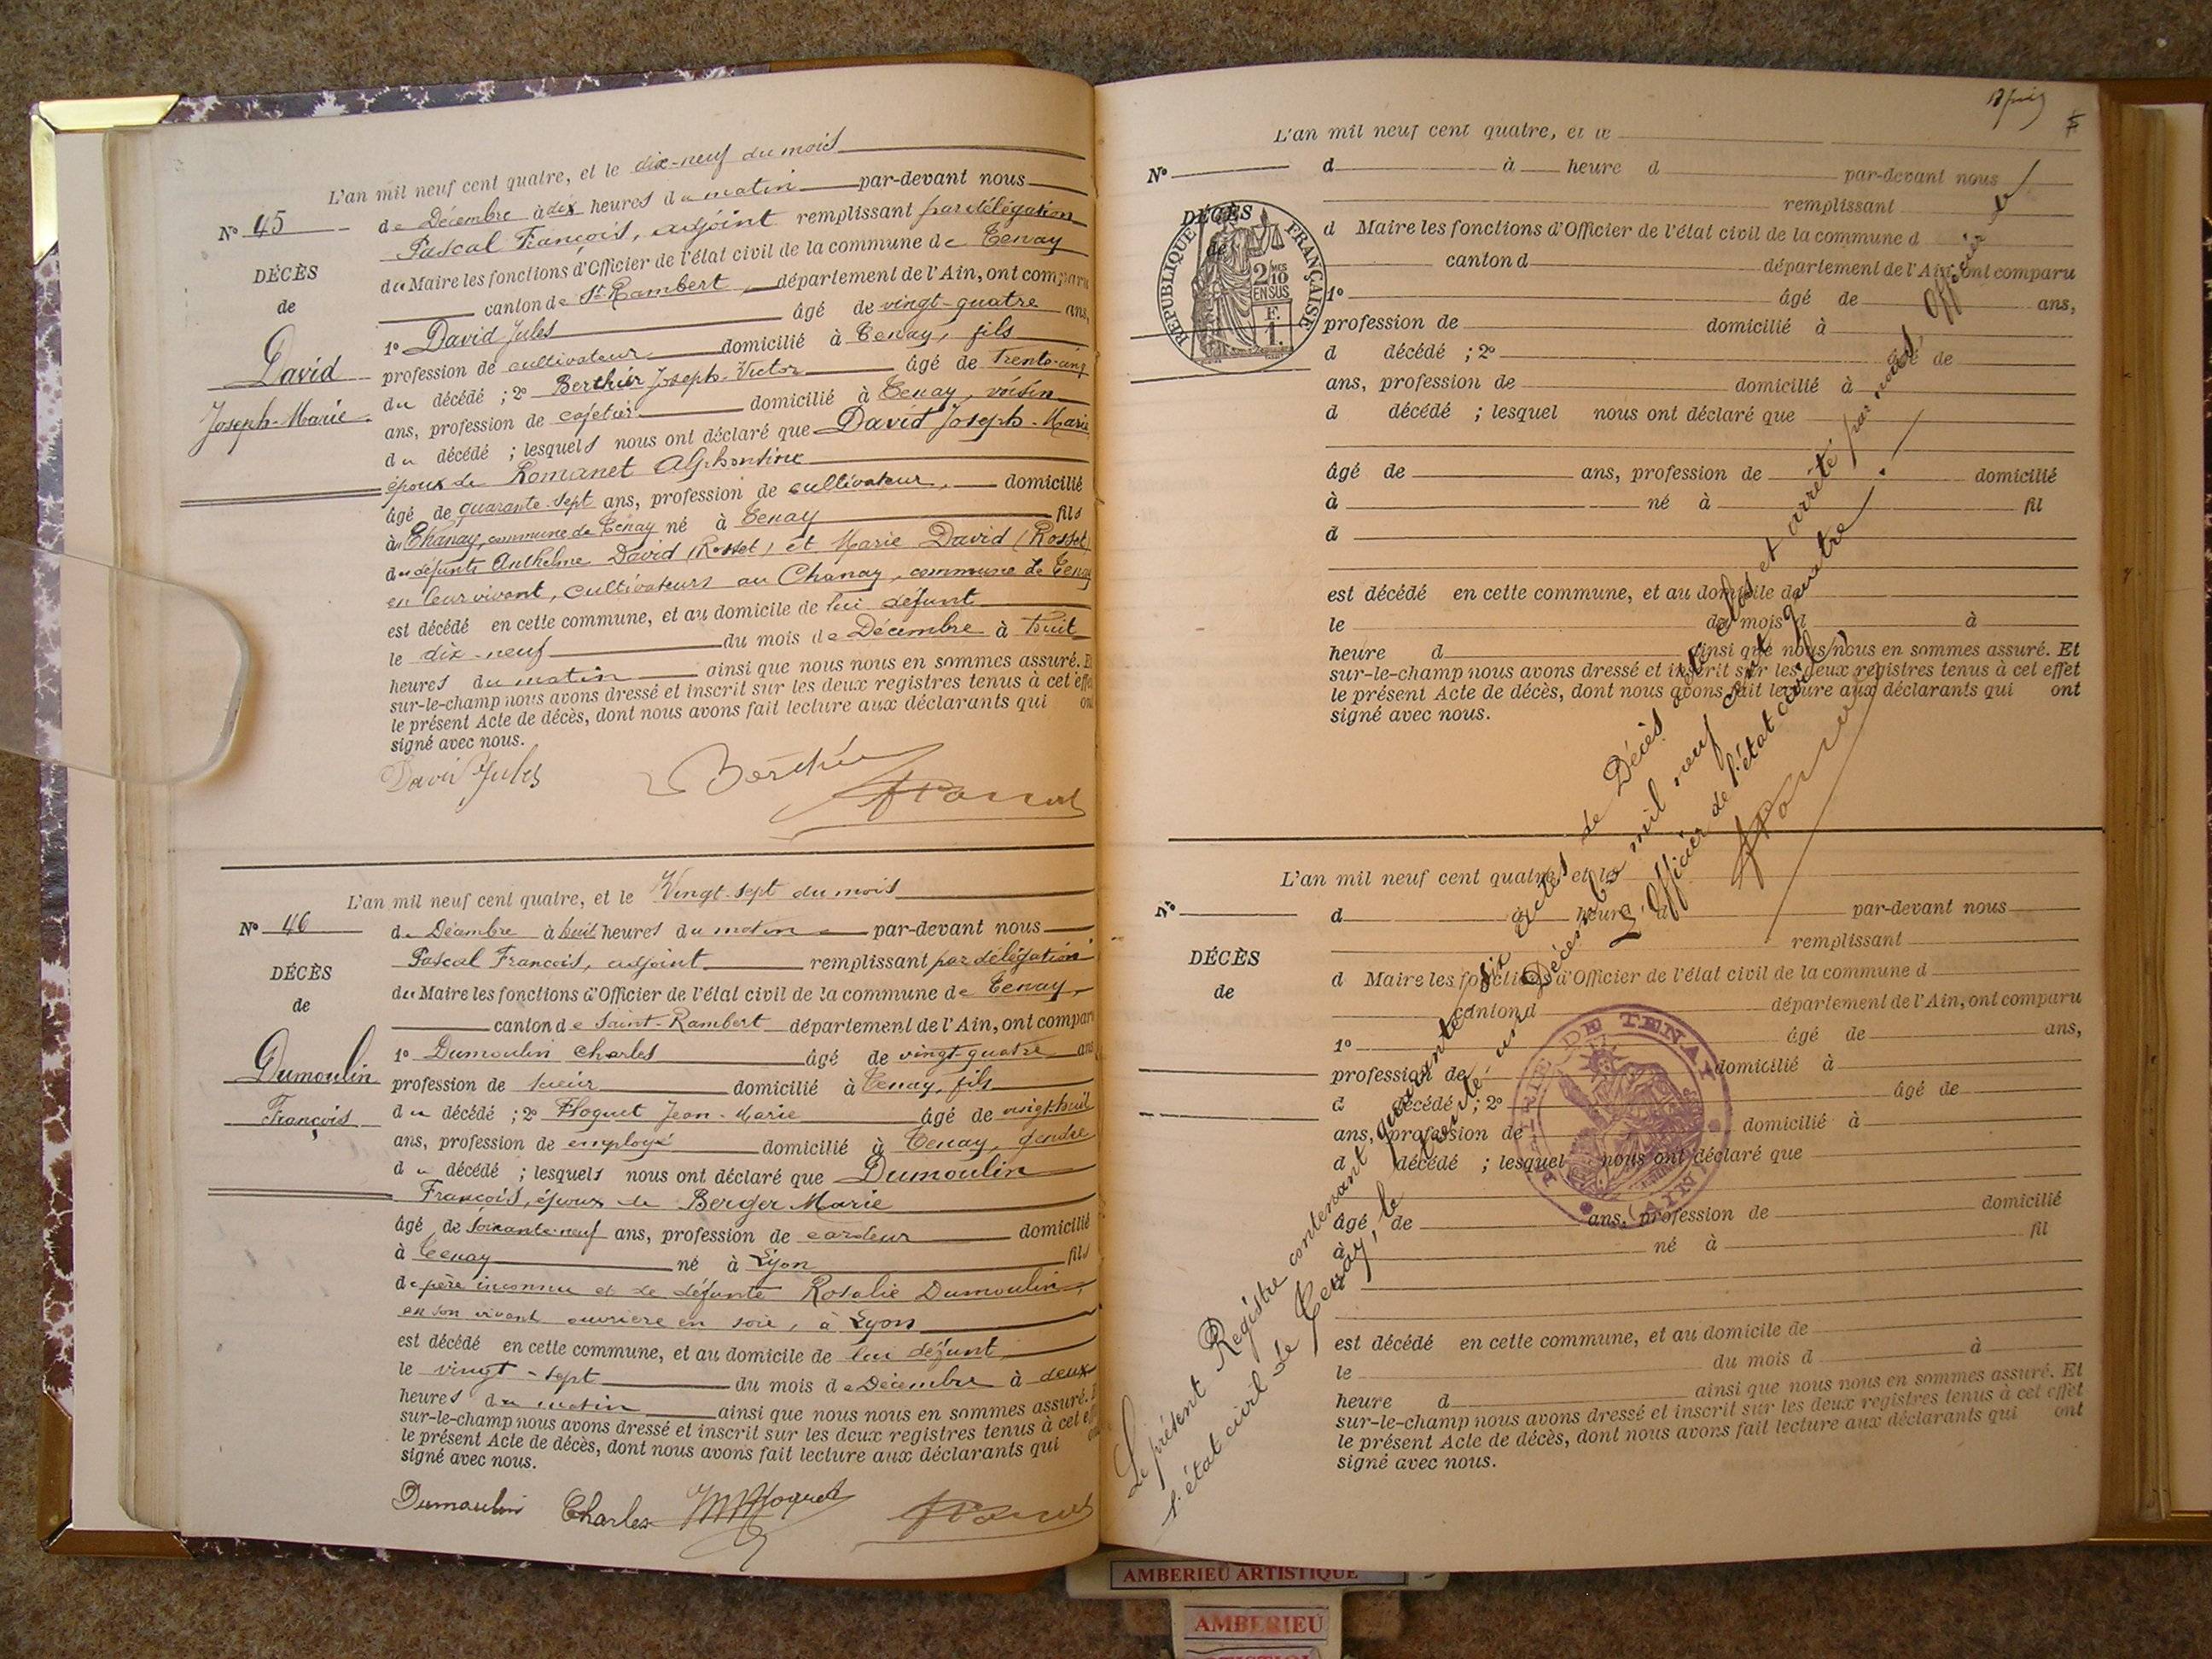 L'an mil neuf cent quatre, et le dix-neuf du mois
N° 45
de Décembre à dix heures du matin par-devant nous
Pascal François, adjoint remplissant par délégation
DÉCÈS
du Maire les fonctions d'Officier de l'état civil de la commune de Tenay
de
canton de St Rambert, département de l'Ain, ont comparu
1° David Jules âgé de vingt-quatre ans,
David
profession de cultivateur domicilié à Tenay, fils
Joseph-Marie
du décédé ; 2° Berthier Joseph-Victor âgé de trente-cinq
ans, profession de cafetier domicilié à Tenay, voisin
du décédé ; lesquels nous ont déclaré que David Joseph-Marie
époux de Romanet Alphonsine
âgé de quarante-sept ans, profession de cultivateur, domicilié
à Chanay, commune de Tenay né à Tenay fils
des défunts Anthelme David (Rosset) et Marie David (Rosset)
en leur vivant, cultivateurs au Chanay, commune de Tenay
est décédé en cette commune, et au domicile de lui défunt
le dix-neuf du mois de Décembre à huit
heures du matin ainsi que nous nous en sommes assuré. Et
sur-le-champ nous avons dressé et inscrit sur les deux registres tenus à cet effet
le présent Acte de décès, dont nous avons fait lecture aux déclarants qui ont
signé avec nous.
David Jules Berthier
L'an mil neuf cent quatre, et le Vingt-sept du mois
N° 46
de Décembre à huit heures du matin par-devant nous
Pascal François, adjoint remplissant par délégation
DÉCÈS
du Maire les fonctions d'Officier de l'état civil de la commune de Tenay,
de
canton de Saint-Rambert département de l'Ain, ont comparu
1° Dumoulin Charles âgé de vingt-quatre ans
Dumoulin
profession de domicilié à Tenay, fils
François
du décédé ; 2° Floquet Jean-Marie âgé de vingt-huit
ans, profession de employé domicilié à Tenay, gendre
du décédé ; lesquels nous ont déclaré que Dumoulin
François, époux de Berger Marie
âgé de soixante-neuf ans, profession de cardeur domicilié
à Tenay né à Lyon fils
de père inconnu et de défunte Rosalie Dumoulin,
en son vivant ouvrière en soie, à Lyon
est décédé en cette commune, et au domicile de lui défunt
le vingt-sept du mois de Décembre à deux
heures du matin ainsi que nous nous en sommes assuré.
sur-le-champ nous avons dressé et inscrit sur les deux registres tenus à cet effet
le présent Acte de décès, dont nous avons fait lecture aux déclarants qui
signé avec nous.
Dumoulin Charles
L'an mil neuf cent quatre, et le
N°
d à heure d par-devant nous
remplissant
DÉCÈS
de
d Maire les fonctions d'Officier de l'état civil de la commune d
canton d département de l'Ain, ont comparu
RÉPUBLIQUE FRANÇAISE
2 MES
10
EN SUS
F.
1.
1° âgé de ans,
profession de domicilié à
d décédé ; 2° âgé de
ans, profession de domicilié à
d décédé ; lesquel nous ont déclaré que
âgé de ans, profession de domicilié
à né à fil
d
est décédé en cette commune, et au domicile de
le du mois d à
heure d ainsi que nous nous en sommes assuré. Et
sur-le-champ nous avons dressé et inscrit sur les deux registres tenus à cet effet
le présent Acte de décès, dont nous avons fait lecture aux déclarants qui ont
signé avec nous.
L'an mil neuf cent quatre, et le
N°
d à heure d par-devant nous
remplissant
DÉCÈS
de
d Maire les fonctions d'Officier de l'état civil de la commune d
canton d département de l'Ain, ont comparu
1° âgé de ans,
profession de domicilié à
d décédé ; 2° âgé de
ans, profession de domicilié à
d décédé ; lesquel nous ont déclaré que
âgé de ans, profession de domicilié
à né à fil
d
est décédé en cette commune, et au domicile de
le du mois d à
heure d ainsi que nous nous en sommes assuré. Et
sur-le-champ nous avons dressé et inscrit sur les deux registres tenus à cet effet
le présent Acte de décès, dont nous avons fait lecture aux déclarants qui ont
signé avec nous.
Le présent Registre contenant quarante six actes de Décès a été clos et arrêté par nous Officier de
l'état civil de Tenay, le trente un Décembre mil neuf cent quatre.
L'Officier de l'état civil
MAIRIE DE TENAY
(AIN)
AMBERIEU ARTISTIQUE
AMBERIEU